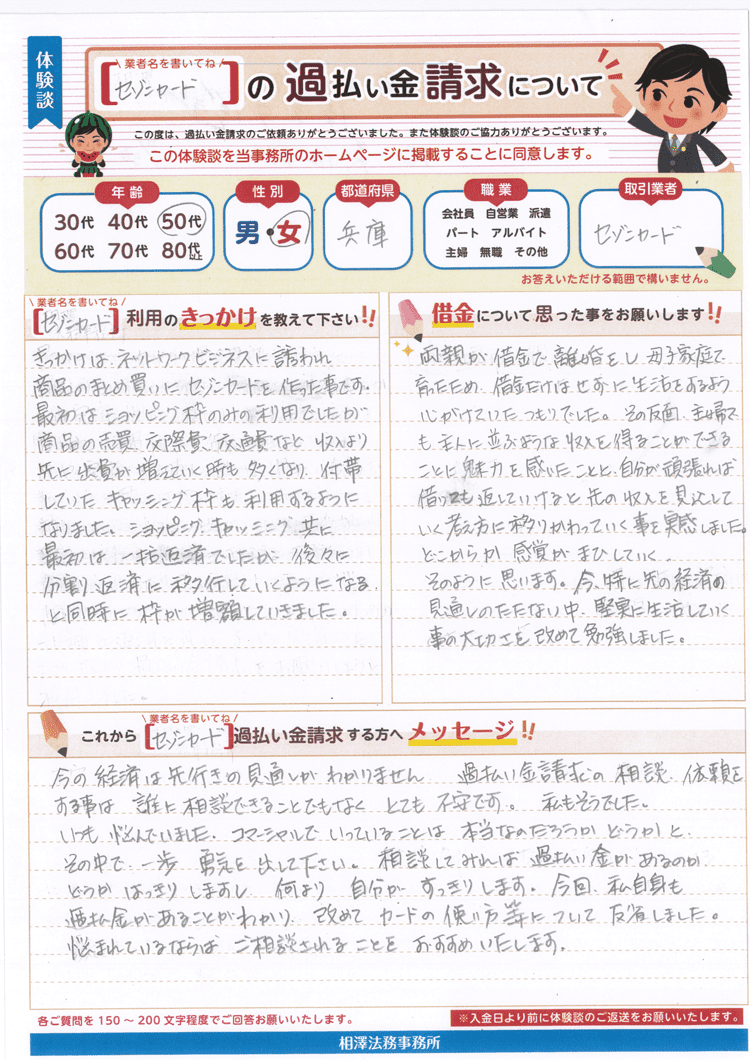 体験談
業者名を書いてね
[セゾンカード]の過払い金請求について
この度は、過払い金請求のご依頼ありがとうございました。また体験談のご協力ありがとうございます。
この体験談を当事務所のホームページに掲載することに同意します。
年齢
30代 40代 50代
60代 70代 80代以上
性別
男・女
都道府県
兵庫
職業
会社員 自営業 派遣
パート アルバイト
主婦 無職 その他
取引業者
セゾンカード
お答えいただける範囲で構いません。
業者名を書いてね
[セゾンカード]利用のきっかけを教えて下さい!!
きっかけは、ネットワークビジネスに誘われ
商品のまとめ買いにセゾンカードを作った事です。
最初はショッピング枠のみの利用でしたが
商品の売買、交際費、交通費など収入より
先に出費が増えていく時も多くなり、付帯
していたキャッシング枠も利用するように
なりました。ショッピング、キャッシング共に
最初は一括返済でしたが、後々に
分割返済に移行していくようになる
と同時に枠が増額していきました。
借金について思った事をお願いします!!
両親が借金で離婚をし母子家庭で
育ったため、借金だけはせずに生活をするよう
心がけていたつもりでした。その反面、主婦で
も主人に並ぶような収入を得ることができる
ことに魅力を感じたことと、自分が頑張れば
借りても返していけると先の収入を見込して
いく考え方に移りかわっていく事を実感しました。
どこからか感覚がまひしていく
そのように思います。今、特に先の経済の
見通しのたたない中、堅実に生活していく
事の大切さを改めて勉強しました。
業者名を書いてね
これから[セゾンカード]過払い金請求する方へメッセージ!!
今の経済は先行きの見通しがわかりません 過払い金請求の相談、依頼を
する事は、誰に相談できることでもなく とても不安です。私もそうでした。
いつも悩んでいました。コマーシャルでいっていることは本当なのだろうかどうかと、
その中で、一歩 勇気を出して下さい。相談してみれば過払い金があるのか
どうかはっきりしますし、何より 自分がすっきりします。今回、私自身も
過払金があることがわかり、改めて カードの使い方等について反省しました。
悩まれているならば ご相談されることを おすすめいたします。
各ご質問を150～200文字程度でご回答お願いいたします。
※入金日より前に体験談のご返送をお願いいたします。
相澤法務事務所